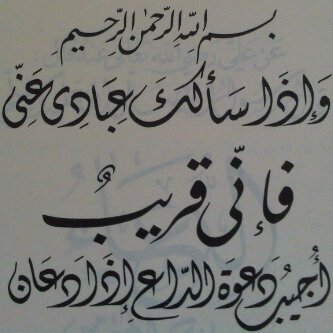 بسم اللهِ الرَّحمٰنِ الرَّحِيمِ
وَإِذَا سَأَلَكَ عِبَادِى عَنِّى
فَإِنِّى قَرِيبٌ
أُجِيبُ دَعْوَةَ الدَّاعِ إِذَا دَعَانِ